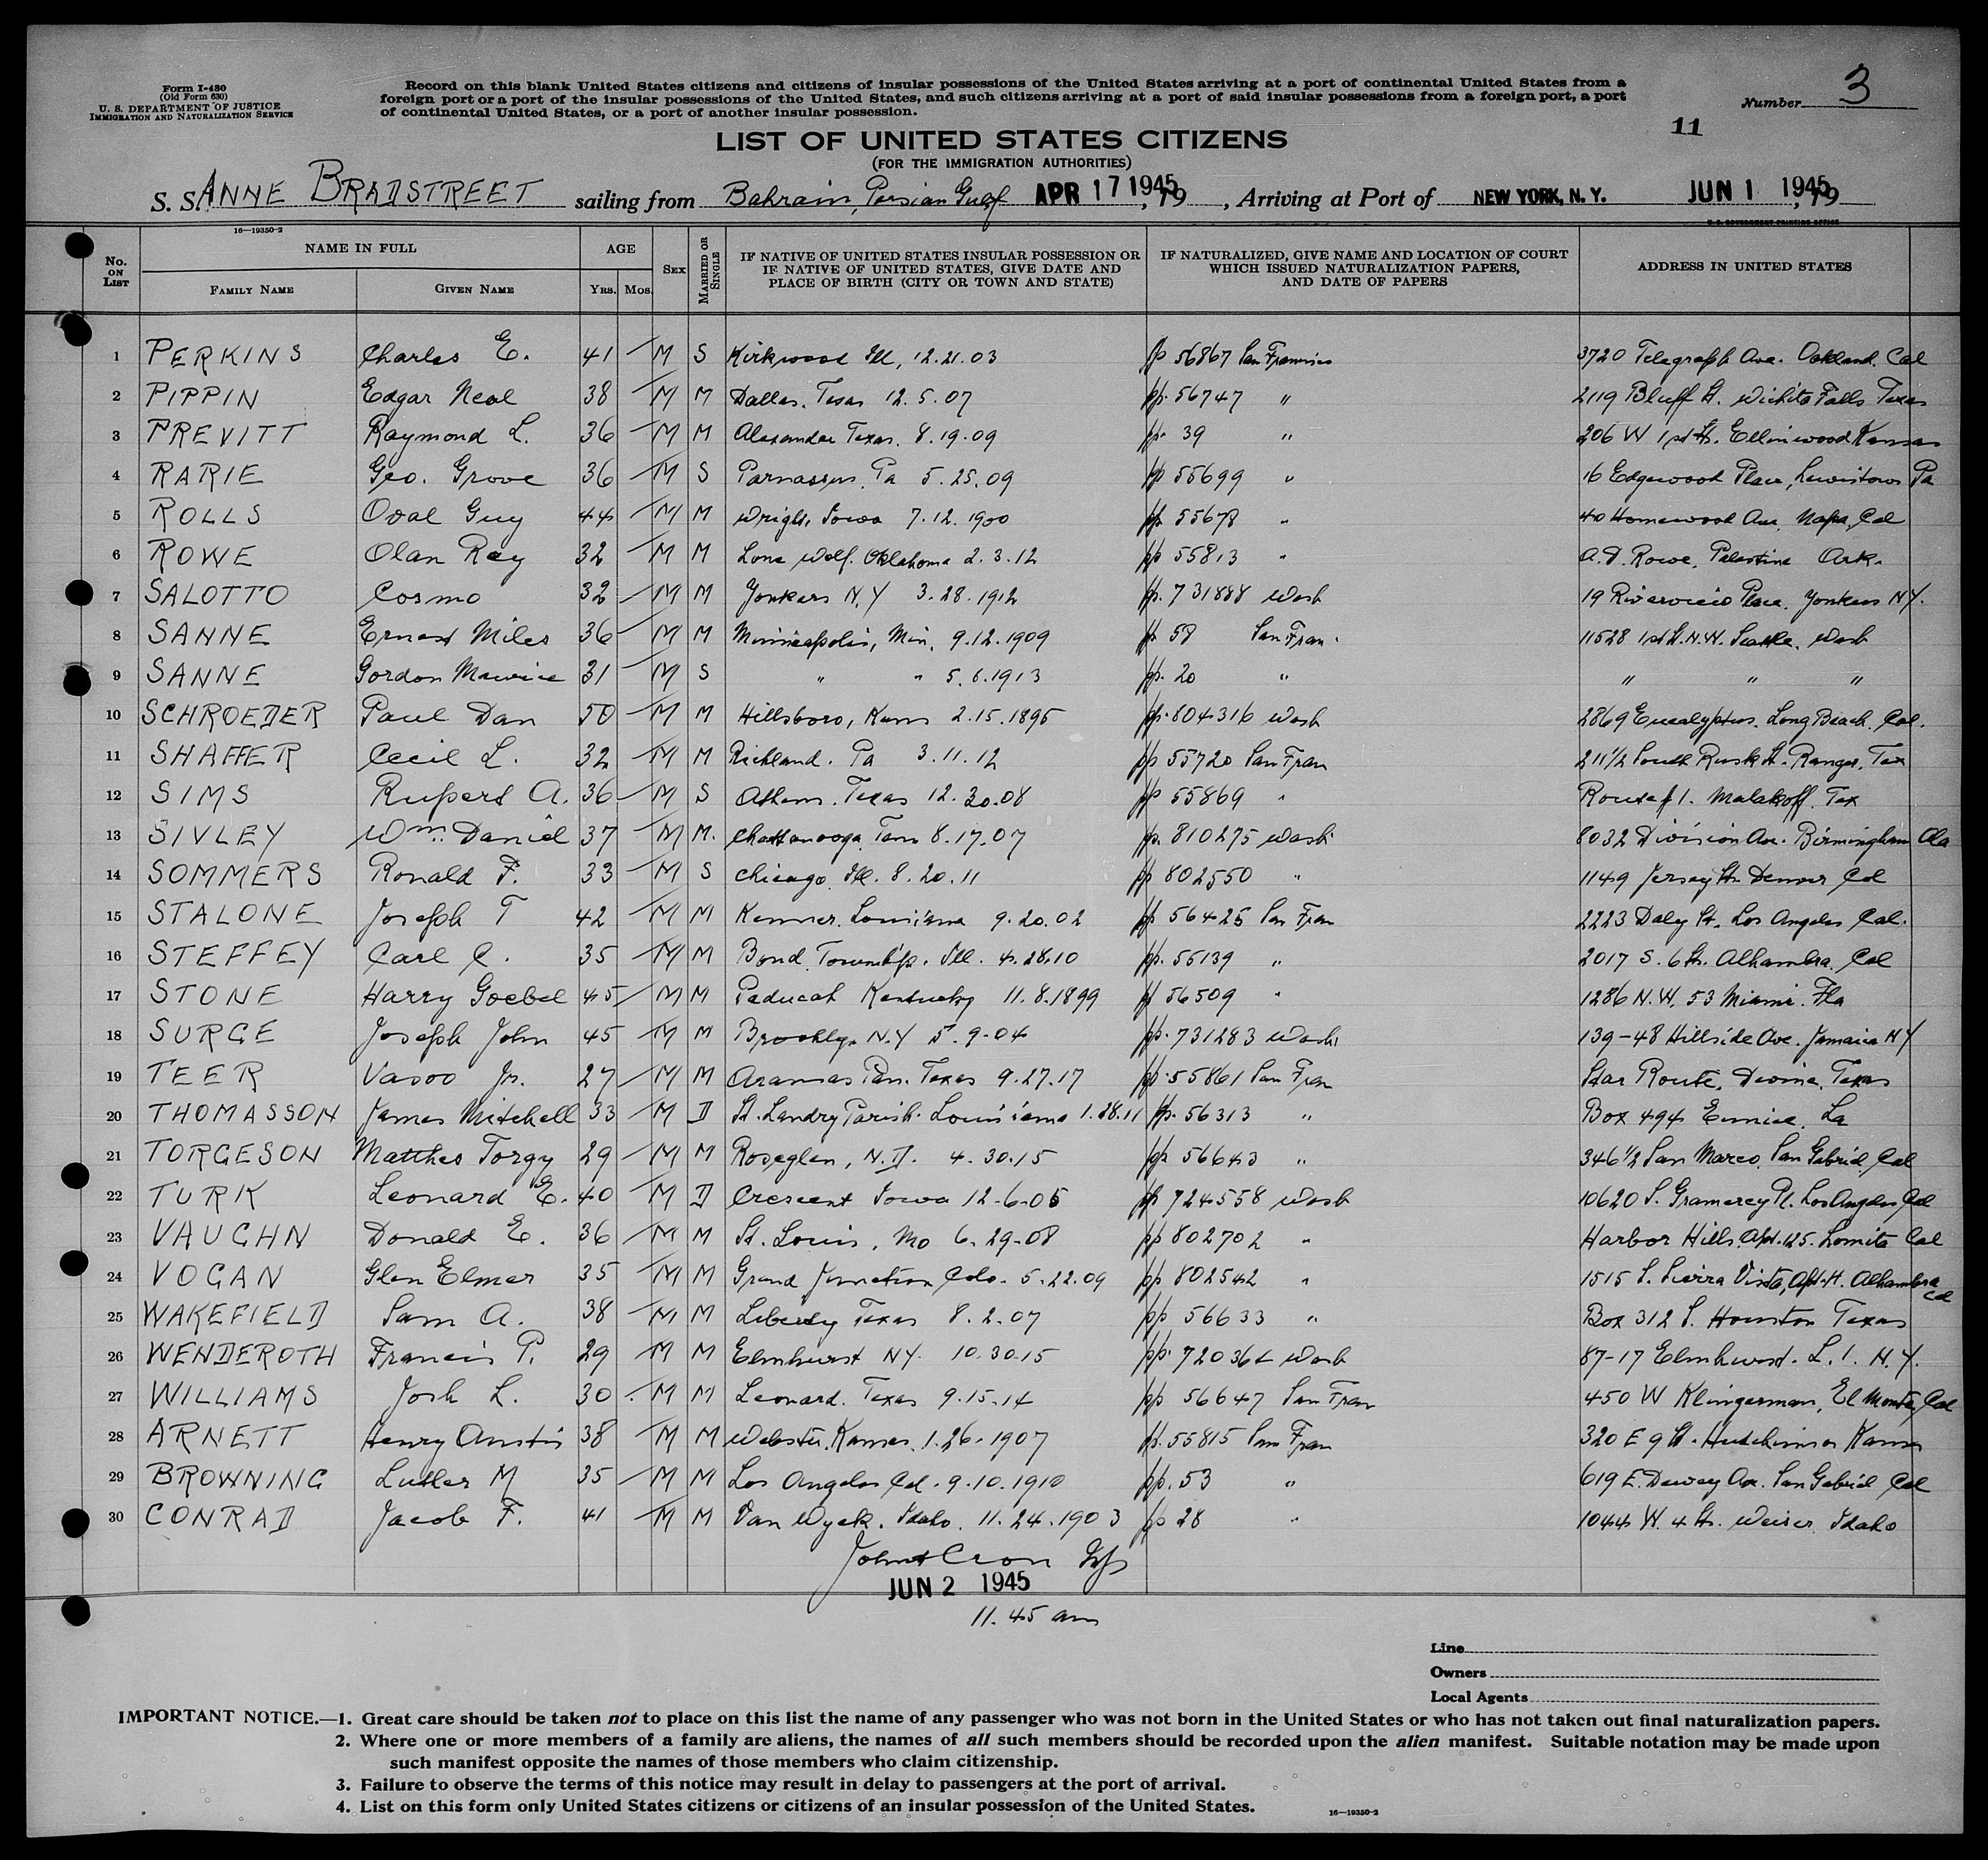 Form I-430
(Old Form 630)
U. S. DEPARTMENT OF JUSTICE
IMMIGRATION AND NATURALIZATION SERVICE
Record on this blank United States citizens and citizens of insular possessions of the United States arriving at a port of continental United States from a
foreign port or a port of the insular possessions of the United States, and such citizens arriving at a port of said insular possessions from a foreign port, a port
of continental United States, or a port of another insular possession.
Number 3
11
LIST OF UNITED STATES CITIZENS
(FOR THE IMMIGRATION AUTHORITIES)
S. S. ANNE BRADSTREET sailing from Bahrain, Persian Gulf APR 17 1945, 19 , Arriving at Port of NEW YORK, N. Y. JUN 1 1945, 19
16—19350-2 U. S. GOVERNMENT PRINTING OFFICE
No. ON LIST NAME IN FULL FAMILY NAME GIVEN NAME AGE YRS. MOS. SEX MARRIED OR SINGLE IF NATIVE OF UNITED STATES INSULAR POSSESSION OR IF NATIVE OF UNITED STATES, GIVE DATE AND PLACE OF BIRTH (CITY OR TOWN AND STATE) IF NATURALIZED, GIVE NAME AND LOCATION OF COURT WHICH ISSUED NATURALIZATION PAPERS, AND DATE OF PAPERS ADDRESS IN UNITED STATES
1 PERKINS Charles E. 41 M S Kirkwood Ill, 12.21.03 pp 56867 San Francisco 3720 Telegraph Ave. Oakland. Cal
2 PIPPIN Edgar Neal 38 M M Dallas. Texas 12.5.07 pp. 56747 " 2119 Bluff St. Wichita Falls Texas
3 PREVITT Raymond L. 36 M M Alexander Texas. 8.19.09 pp. 39 " 206 W 1st St. Ellinwood Kansas
4 RARIE Geo. Grove 36 M S Parnassus, Pa 5.25.09 pp 55699 " 16 Edgewood Place, Lewistown Pa
5 ROLLS Oval Guy 44 M M Wright, Iowa 7.12.1900 pp. 55678 " 40 Homewood Ave, Napa, Cal
6 ROWE Olan Ray 32 M M Lone Wolf. Oklahoma 2.3.12 pp 55813 " A.D. Rowe, Palestine Ark.
7 SALOTTO Cosmo 32 M M Yonkers N.Y 3.28.1912 pp. 731888 Wash 19 Riverview Place. Yonkers NY.
8 SANNE Ernest Miles 36 M M Minneapolis, Min. 9.12.1909 pp 58 San Fran. 11528 1st St. N.W. Seattle. Wash
9 SANNE Gordon Maurice 31 M S " " 5.6.1913 pp. 20 " " " "
10 SCHROEDER Paul Dan 50 M M Hillsboro, Kans 2.15.1895 pp. 804316 Wash 2869 Eucalyptus. Long Beach. Cal.
11 SHAFFER Cecil L. 32 M M Richland. Pa 3.11.12 pp 55720 San Fran 211½ South Rusk St. Ranger, Tex
12 SIMS Rupert A. 36 M S Athens. Texas 12.30.08 pp 55869 " Route #1. Malakoff. Tex
13 SIVLEY Wm. Daniel 37 M M. Chattanooga Tenn 8.17.07 pp. 810275 Wash 8032 Division Ave. Birmingham Ala
14 SOMMERS Ronald F. 33 M S Chicago. Ill. 8.20.11 pp 802550 " 1149 Jersey St. Denver Col
15 STALONE Joseph T 42 M M Kenner. Louisiana 9.20.02 pp 56425 San Fran 2223 Daly St. Los Angeles Cal.
16 STEFFEY Carl C. 35 M M Bond Township. Ill. 4.28.10 pp. 55139 " 2017 S. 6 St. Alhambra. Cal
17 STONE Harry Goebel 45 M M Paducah Kentucky 11.8.1899 pp 56509 " 1286 N.W. 53 Miami. Fla
18 SURGE Joseph John 45 M M Brooklyn N.Y 5.9-04 pp. 731283 Wash. 139-48 Hillside Ave. Jamaica NY
19 TEER Vasoo Jr. 27 M M Aransas Pass. Texas 9.27.17 pp. 55861 San Fran Star Route, Devine, Texas
20 THOMASSON James Mitchell 33 M D St. Landry Parish. Louisiana 1.28.11 pp. 56313 " Box 494 Eunice. La
21 TORGESON Matthes Torgy 29 M M Roseglen, N.D. 4.30.15 pp 56643 " 346½ San Marco, San Gabriel, Cal
22 TURK Leonard E. 40 M D Crescent Iowa 12-6-05 pp 724558 Wash 10620 S. Gramercy Pl. Los Angeles, Cal
23 VAUGHN Donald E. 36 M M St. Louis, Mo 6.29-08 pp 802702 " Harbor Hills. Apt. 125. Lomita Cal
24 VOGAN Glen Elmer 35 M M Grand Junction, Colo. 5.22.09 pp 802542 " 1515 S. Sierra Vista, Apt. H. Alhambra Cal
25 WAKEFIELD Sam A. 38 M M Liberty Texas 8.2.07 pp 56633 " Box 312 S. Houston Texas
26 WENDEROTH Francis P. 29 M M Elmhurst NY. 10.30.15 pp. 72036 Wash 87-17 Elmhurst. L.I. N.Y.
27 WILLIAMS Josh L. 30 M M Leonard. Texas 9.15.14 pp 56647 San Fran 450 W Klingerman, El Monte, Cal
28 ARNETT Henry Austin 38 M M Webster, Kansas. 1.26.1907 pp. 55815 San Fran 320 E 9 St. Hutchinson Kansas
29 BROWNING Luther M 35 M M Los Angeles Cal. 9.10.1910 pp. 53 " 619 E. Dewey Ave. San Gabriel Cal
30 CONRAD Jacob F. 41 M M Van Wyck. Idaho. 11.24.1903 pp 28 " 1044 W. 4 St. Weiser Idaho
Cron
JUN 2 1945
11.45 am
Line
Owners
Local Agents
IMPORTANT NOTICE.—1. Great care should be taken not to place on this list the name of any passenger who was not born in the United States or who has not taken out final naturalization papers.
2. Where one or more members of a family are aliens, the names of all such members should be recorded upon the alien manifest. Suitable notation may be made upon
such manifest opposite the names of those members who claim citizenship.
3. Failure to observe the terms of this notice may result in delay to passengers at the port of arrival.
4. List on this form only United States citizens or citizens of an insular possession of the United States.
16—19350-2